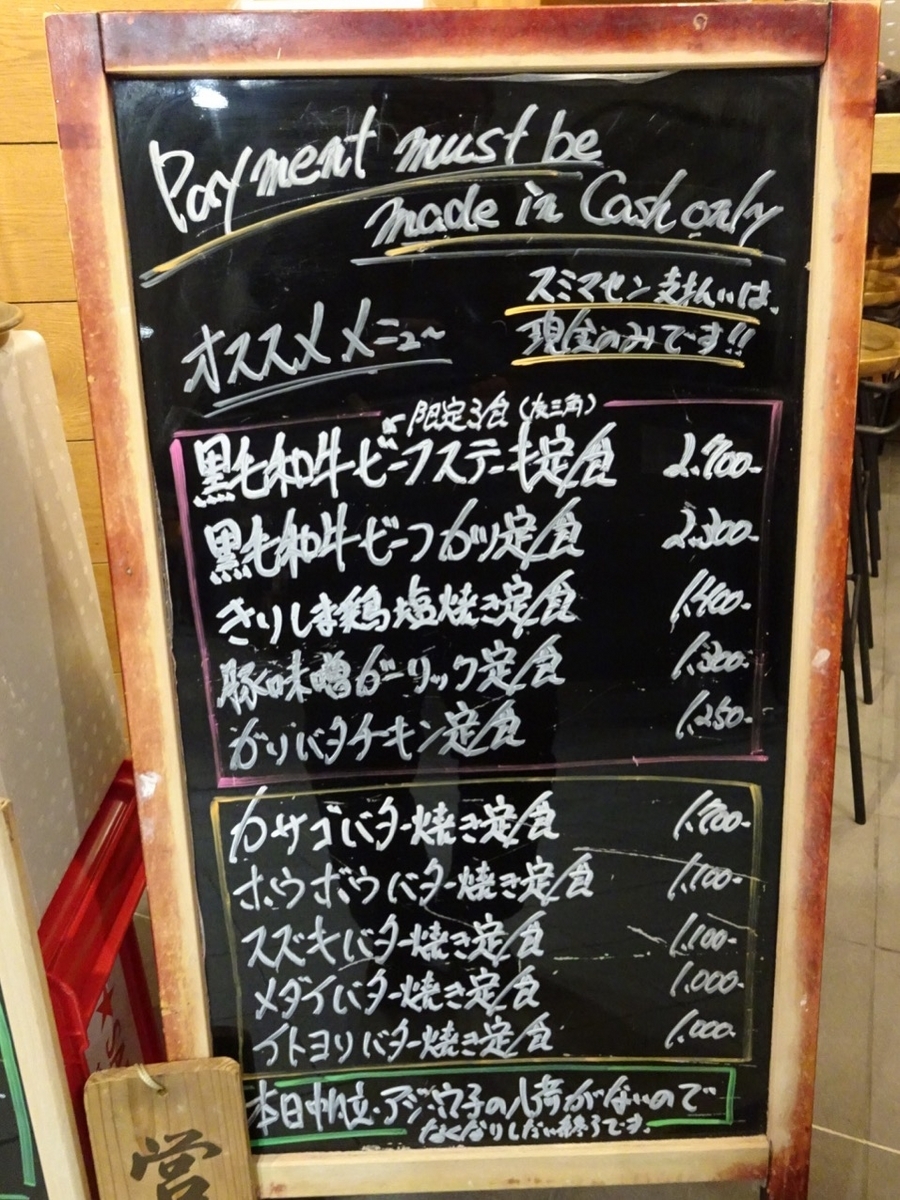 Payment must be
made in Cash only
スミマセン 支払いは、
現金のみです!!
オススメメニュー
限定3食(友三角)
黒毛和牛ビーフステーキ定食 2,700-
黒毛和牛ビーフカツ定食 2,300-
きりしま鶏塩焼き定食 1,400-
豚味噌ガーリック定食 1,300-
ガリバタチキン定食 1,250-
カサゴバター焼き定食 1,700-
ホウボウバター焼き定食 1,100-
スズキバター焼き定食 1,100-
メダイバター焼き定食 1,000-
イトヨリバター焼き定食 1,000-
本日帆立・アジ・穴子の入荷がないので
なくなりしだい終了です。
営